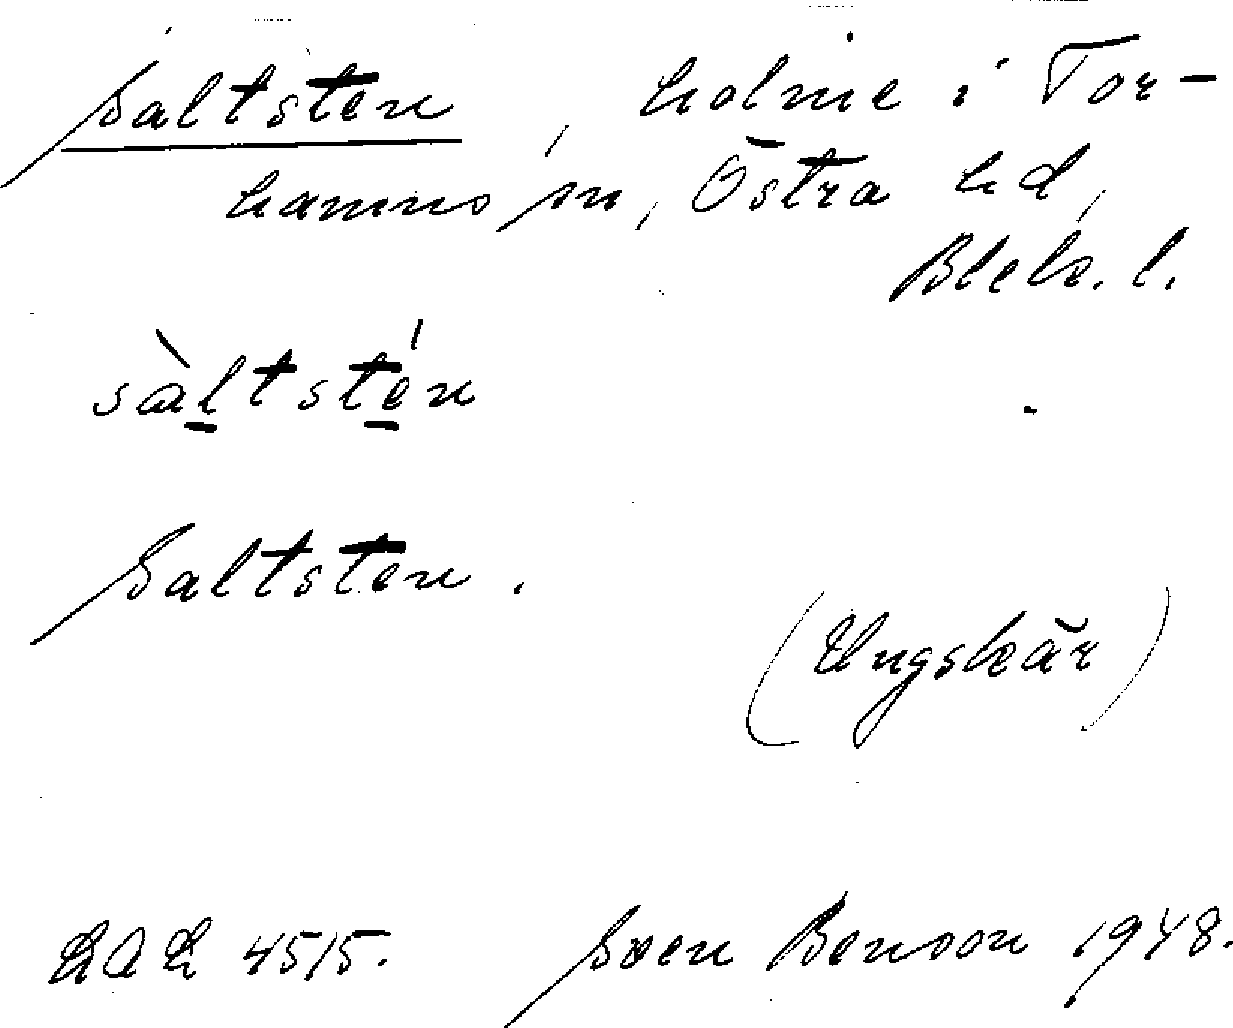 Saltsten, holme i Tor-
hamns sn, Östra hd,
Blek. l.
sàltstén
Saltsten.
(Ungskär)
LAL 4515. Sven Benson 1948.